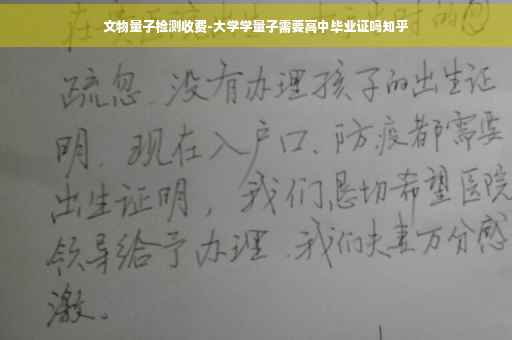 文物量子检测收费-大学学量子需要高中毕业证吗知乎
疏忽、没有办理孩子的出生证
明、现在入户口、防疫都需要
出生证明，我们恳切希望医院
领导给予办理、我们夫妻万分感
激。